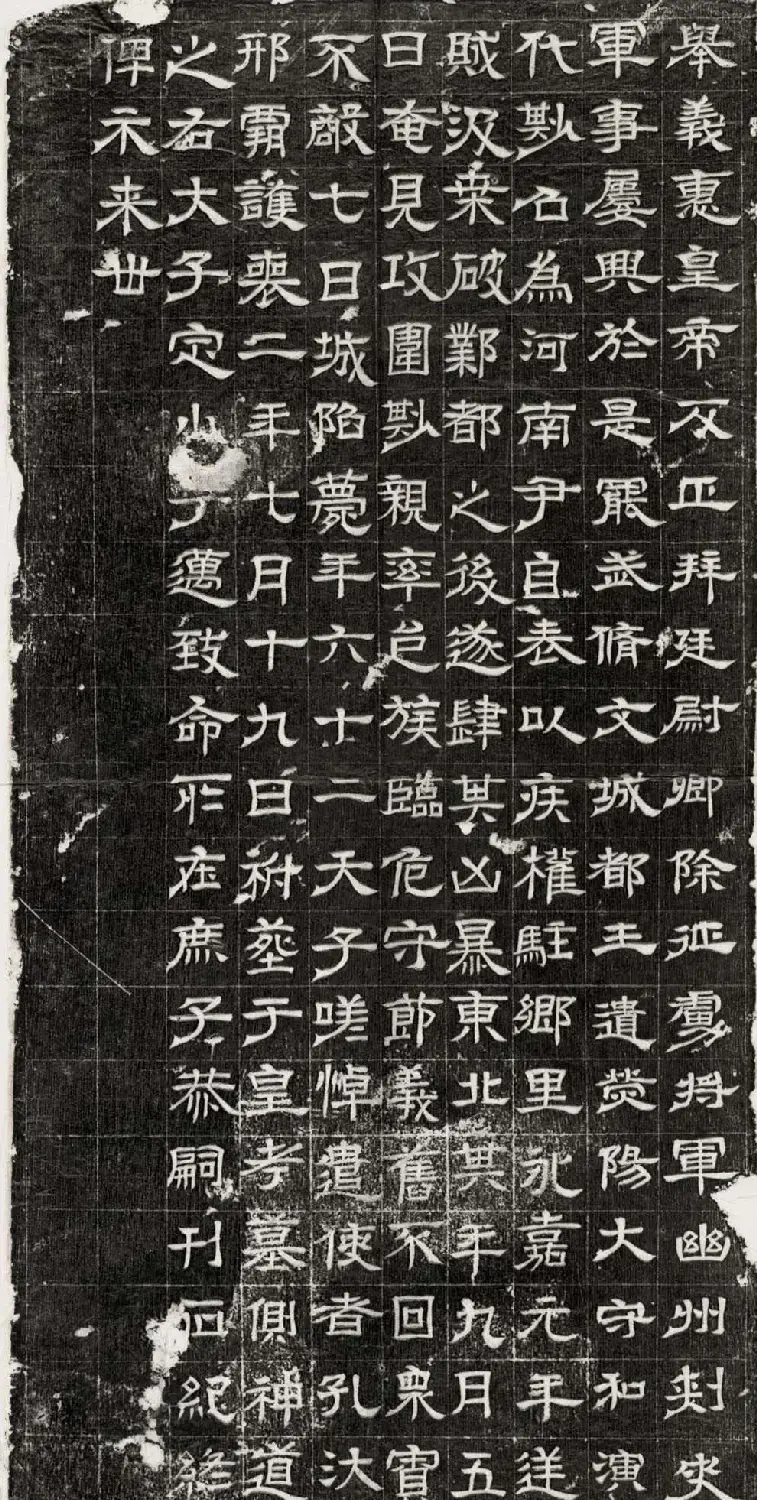 舉義惠皇帝反正拜廷尉卿除征虜將軍幽州刺史
軍事屢興於是罷武脩文城都王遣熒陽大守和演
代尠召為河南尹自表以疾權駐鄉里永嘉元年逆
賊汲桒破鄴都之後遂肆其凶暴東北其年九月五
日奄見攻圍尠親率邑族臨危守節義舊不回衆寡
不敵七日城陷薨年六十二天子嗟悼遣使者孔汏
邢霸護喪二年七月十九日祔葬于皇考墓側神道
之右大子定小子邁致命所在庶子恭嗣刊石紀終
俾示来世